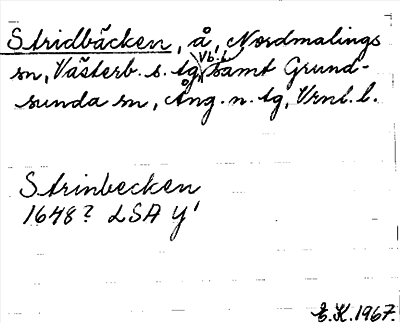 Stridbäcken, å, Nordmalings
sn, Västerb. s. tg, Vb. l. samt Grund-
sunda sn, Ång. n. tg, Vrnl. l.
Strinbecken
1648? LSA y¹
E.K. 1967.